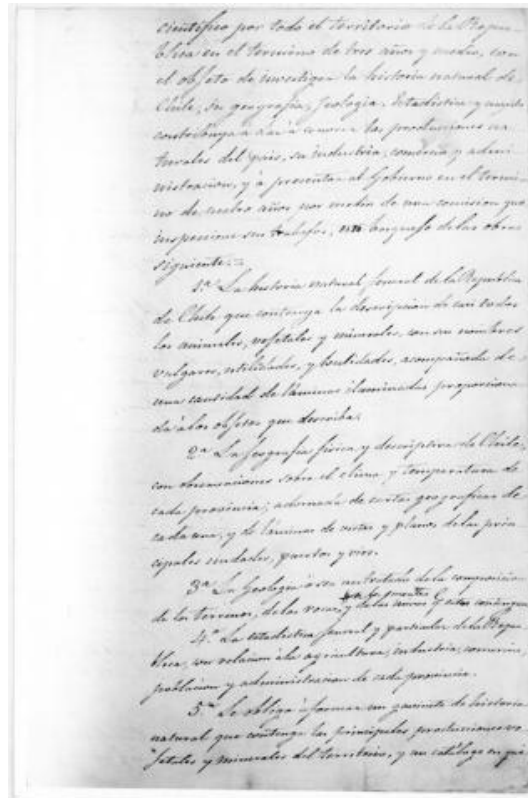 científico por todo el territorio de la Repu-
blica en el termino de tres años y medio, con
el objeto de investigar la historia natural de
Chile, su geografia, jeologia, Estadistica y cuanto
contribuya a dar á conocer las producciones na-
turales del pais, su industria, comercio y admi-
nistracion, y á presentar al Gobierno en el termi-
no de cuatro años por medio de una comision que
inspeccione sus trabajos, un bosquejo de las obras
siguiente:=
1ª La historia natural jeneral de la Republica
de Chile que contenga la descripcion de casi todos
los animales, vejetales y minerales, con sus nombres
vulgares, utilidades, y localidades, acompañada de
una cantidad de laminas iluminadas proporciona
da á los objetos que describa.
2ª La Jeografia fisica y descriptiva de Chile,
con observaciones sobre el clima y temperatura de
cada provincia; adornada de cartas geograficas de
cada una, y de láminas de vistas y planos de las prin
cipales ciudades, puertos y rios.
3ª La Geologia ó sea un tratado de la composicion
de los terrenos, de las rocas, y de las minas
4ª La estadistica jeneral y particular de la Repu
blica, con relacion á la agricultura, industria, comercio,
poblacion y administracion de cada provincia.
5ª Se obliga á formar un gavinete de historia
natural que contenga las principales producciones ve
jetales y minerales del territorio, y un catálogo en que